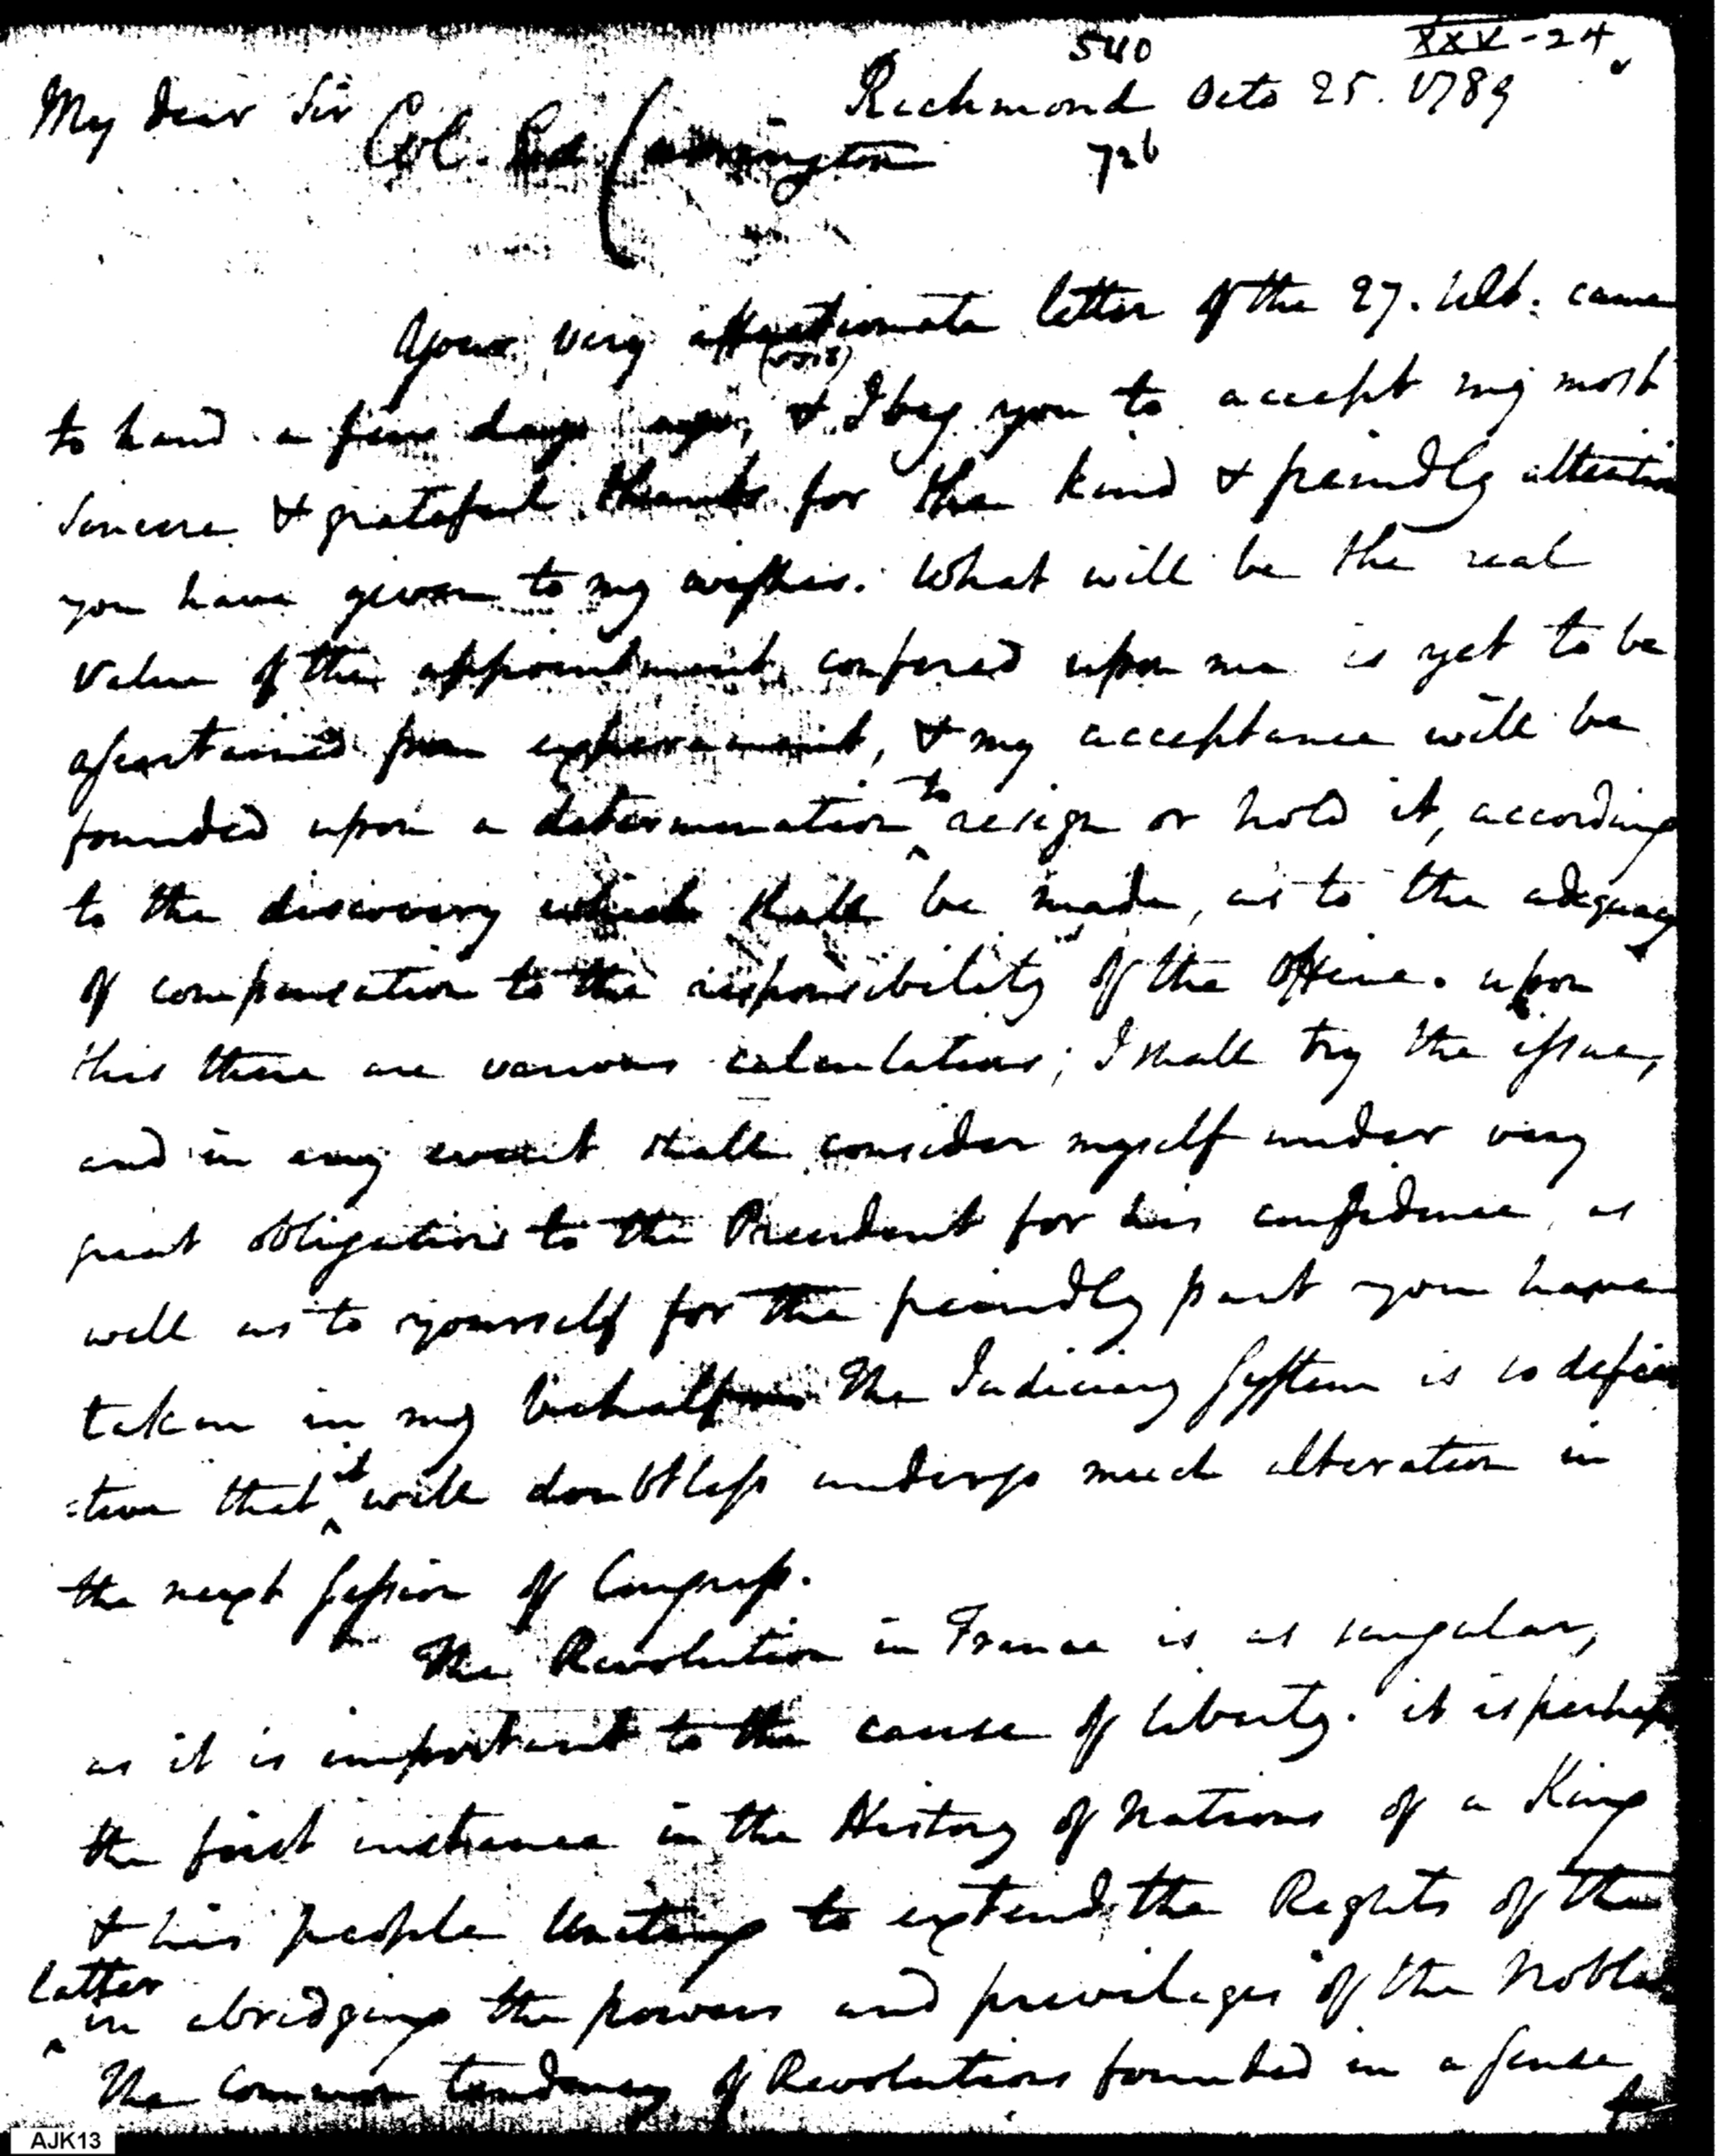 540 XXV-24
My dear Sir Richmond Octo 25. 1789
Col. Ed Carrington 726
Your very affectionate letter of the 27. Ult. came
to hand a few days ago, & I beg you to accept my most
sincere & grateful thanks for the kind & friendly attention
you have given to my wishes. What will be the real
value of the appointment confered upon me is yet to be
ascertained from experiment, & my acceptance will be
founded upon a determination to resign or hold it, according
to the discovery which shall be made, as to the adequacy
of compensation to the responsibility of the Office. upon
this there are various calculations; I shall try the issue,
and in any event shall consider myself under very
great obligations to the President for his confidence, as
well as to yourself for the friendly part you have
taken in my behalf The Judiciary System is so defec
:tive that it will doubtless undergo much alteration in
the next Session of Congress.
The Revolution in France is as singular,
as it is important to the cause of liberty. it is perhaps
the first instance in the History of Nations of a King
& his people Uniting to extend the Rights of the
latter
in abridging the powers and privileges of the Nobles
The common tendency of Revolutions founded in a sense
AJK13